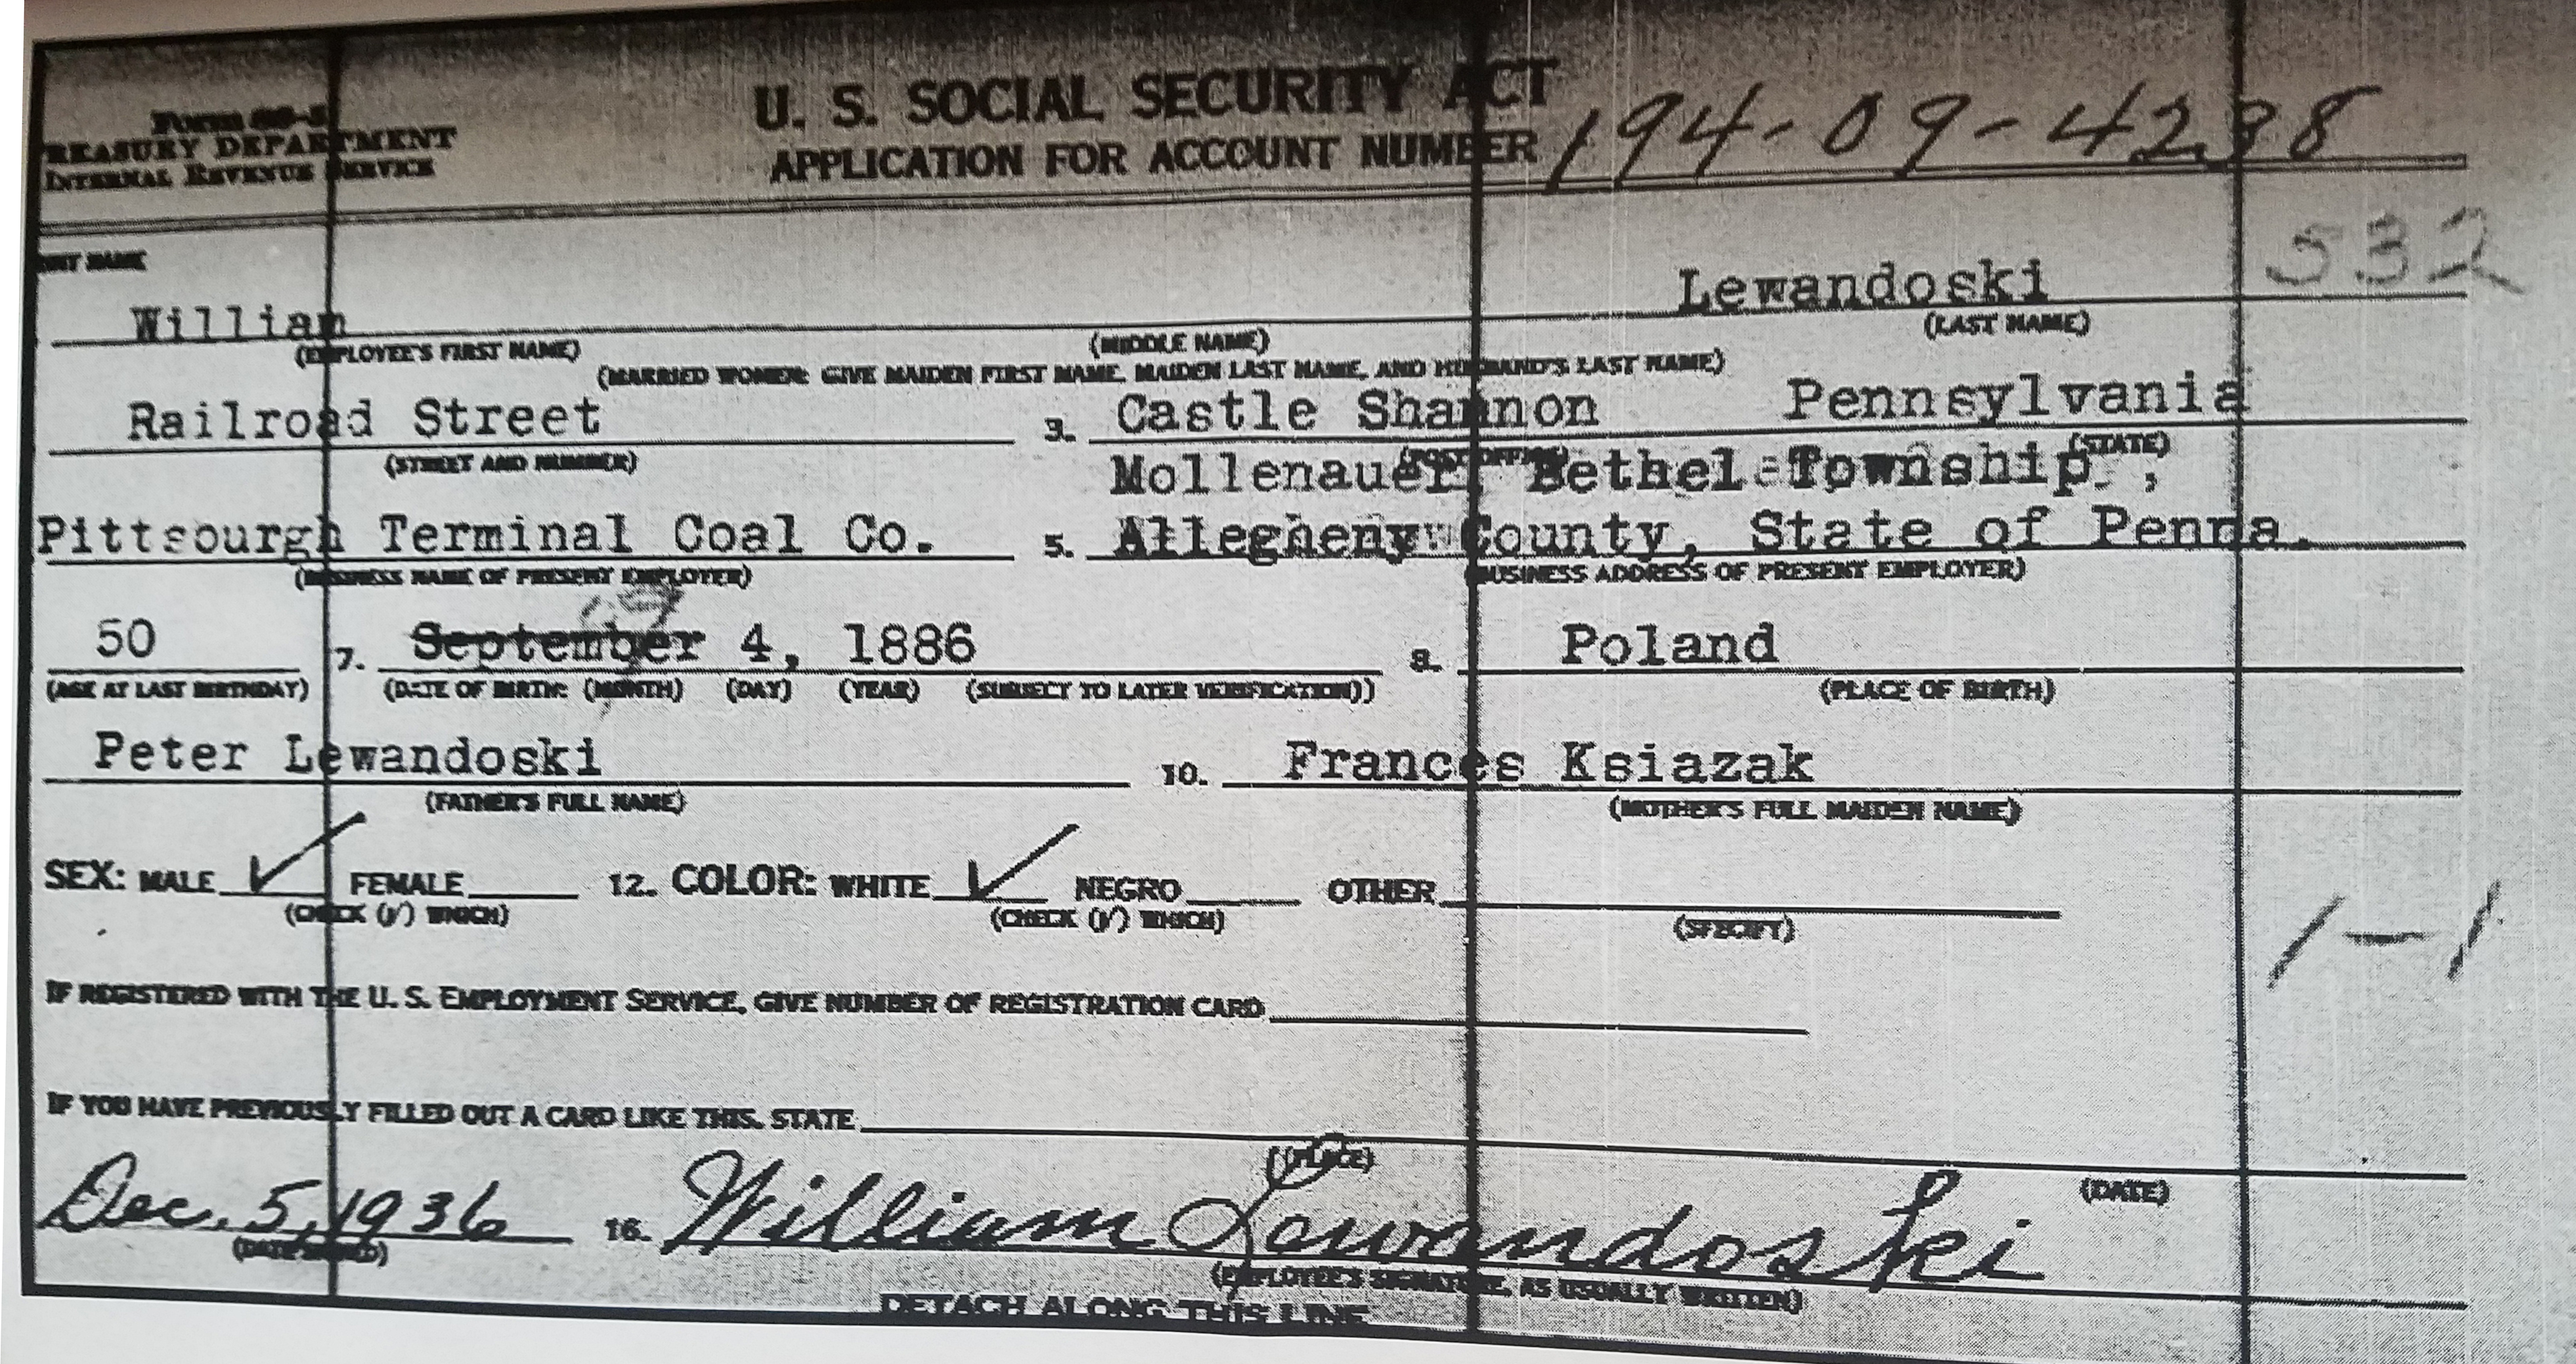 Form SS-5
TREASURY DEPARTMENT
INTERNAL REVENUE SERVICE
U. S. SOCIAL SECURITY ACT
APPLICATION FOR ACCOUNT NUMBER
194-09-4238
532
NT NAME
William Lewandoski
(EMPLOYEE'S FIRST NAME) (MIDDLE NAME) (LAST NAME)
(MARRIED WOMEN: GIVE MAIDEN FIRST NAME, MAIDEN LAST NAME, AND HUSBAND'S LAST NAME)
Railroad Street 3. Castle Shannon Pennsylvania
(STREET AND NUMBER) (POST OFFICE) (STATE)
Mollenauer, Bethel Township,
Pittsourgh Terminal Coal Co. 5. Allegheny County, State of Penna.
(BUSINESS NAME OF PRESENT EMPLOYER) (BUSINESS ADDRESS OF PRESENT EMPLOYER)
50 7. September 4, 1886 8. Poland
(AGE AT LAST BIRTHDAY) (DATE OF BIRTH: (MONTH) (DAY) (YEAR) (SUBJECT TO LATER VERIFICATION)) (PLACE OF BIRTH)
Peter Lewandoski 10. Frances Ksiazak
(FATHER'S FULL NAME) (MOTHER'S FULL MAIDEN NAME)
SEX: MALE ✓ FEMALE 12. COLOR: WHITE ✓ NEGRO OTHER
(CHECK (✓) WHICH) (CHECK (✓) WHICH) (SPECIFY)
1-1
IF REGISTERED WITH THE U. S. EMPLOYMENT SERVICE, GIVE NUMBER OF REGISTRATION CARD
IF YOU HAVE PREVIOUSLY FILLED OUT A CARD LIKE THIS, STATE
(PLACE) (DATE)
Dec. 5, 1936 16. William Lewandoski
(DATE SIGNED) (EMPLOYEE'S SIGNATURE, AS USUALLY WRITTEN)
DETACH ALONG THIS LINE